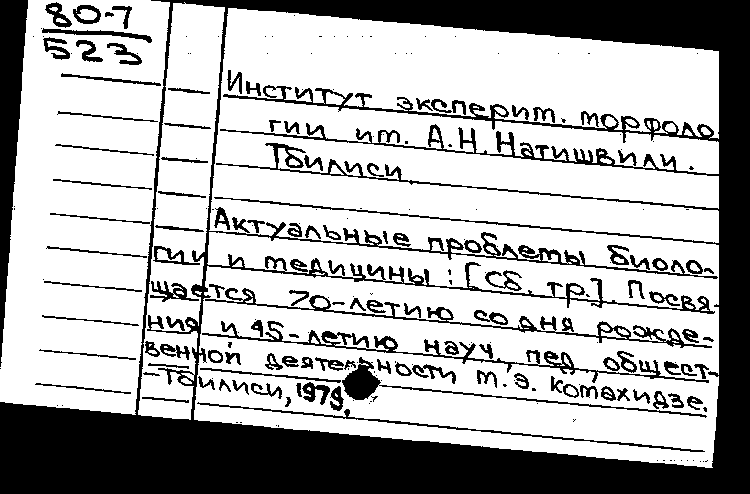 80-7
523
Институт эксперим. морфоло
гии им. А.Н. Натишвили.
Тбилиси.
Актуальные проблемы биоло-
гии и медицины : [Сб. тр.]. Посвя-
щается 70-летию со дня рожде-
ния и 45-летию науч., пед., общест-
венной деятельности М.Э. Комахидзе.
-Тбилиси, 1979.